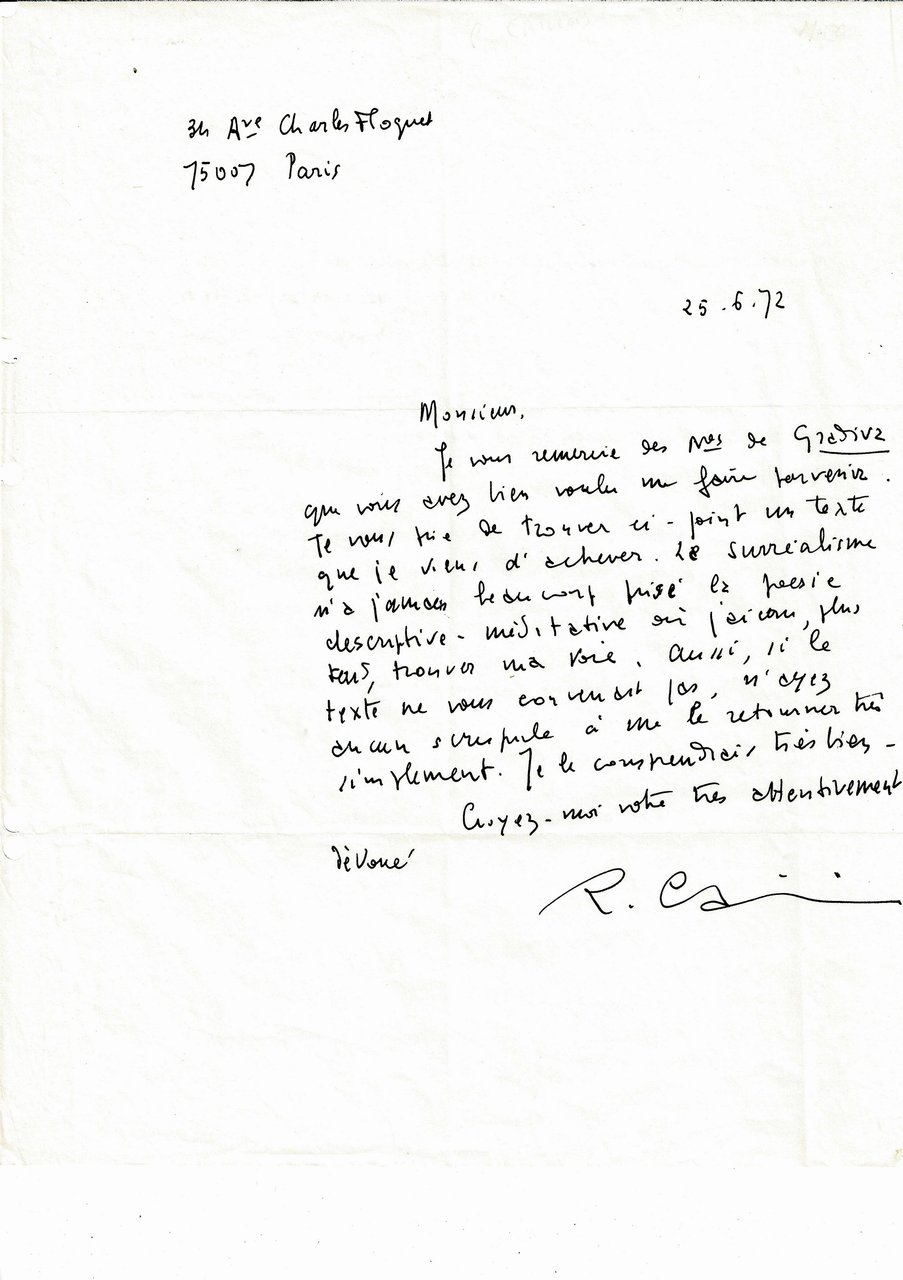 34 Ave Charles Floquet
75007 Paris
25.6.72
Monsieur,
Je vous remercie des Nos de Gradiva
que vous avez bien voulu me faire parvenir.
Je vous prie de trouver ci-joint un texte
que je viens d'achever. Le surréalisme
n'a jamais beaucoup prisé la poésie
descriptive-méditative où j'ai cru, plus
tard, trouver ma voie. Aussi, si le
texte ne vous convenait pas, n'ayez
aucun scrupule à me le retourner très
simplement. Je le comprendrais très bien-
Croyez-moi votre très attentivement
dévoué
R. Ca